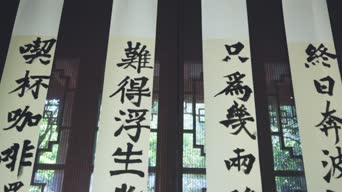 終日奔波
只為幾兩
難得浮生
喫杯咖啡